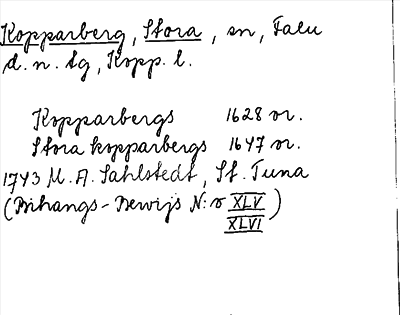 Kopparberg, Stora, sn, Falu
d. n. tg, Kopp. l.
Kopparbergs 1628 or.
Stora kopparbergs 1647 or.
1743 M. A. Sahlstedt, St. Tuna
(Bihangs-Bewijs N:o XLV
XLVI)